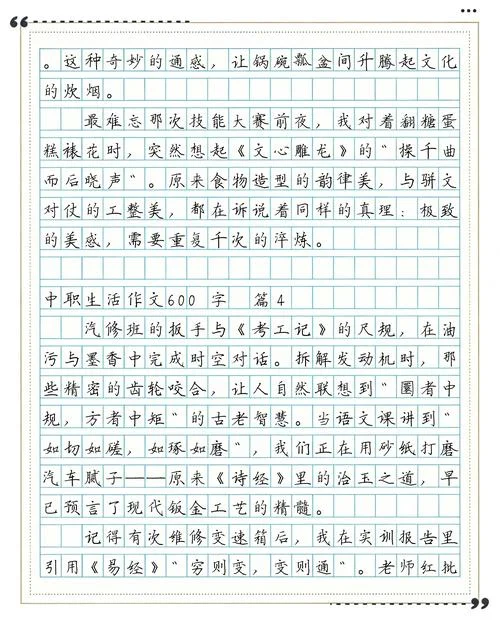 。这种奇妙的通感，让锅碗瓢盆间升腾起文化
的炊烟。
最难忘那次技能大赛前夜，我对着翻糖蛋
糕裱花时，突然想起《文心雕龙》的“操千曲
而后晓声“。原来食物造型的韵律美，与骈文
对仗的工整美，都在诉说着同样的真理：极致
的美感，需要重复千次的淬炼。
中职生活作文600 字 篇4
汽修班的扳手与《考工记》的尺规，在油
污与墨香中完成时空对话。拆解发动机时，那
些精密的齿轮咬合，让人自然联想到“圜者中
规，方者中矩“的古老智慧。当语文课讲到“
如切如磋，如琢如磨“，我们正在用砂纸打磨
汽车腻子——原来《诗经》里的治玉之道，早
已预言了现代钣金工艺的精髓。
记得有次维修变速箱后，我在实训报告里
引用《易经》“穷则变，变则通“。老师红批